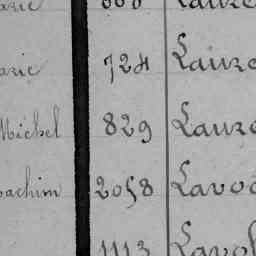 arie 668 Lauze
arie 724 Lauze
Michel 829 Lauze
oachim 2058 Lavoi
1113 Lavol